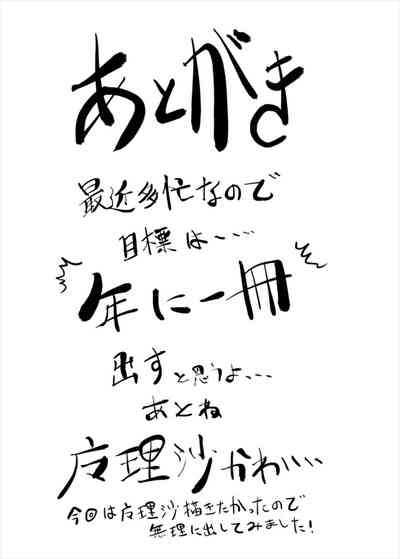 あとがき
最近多忙なので
目標は・・・
年に一冊
出すと思うよ、、、
あとね
魔理沙かわいい
今回は魔理沙描きたかったので
無理に出してみました!